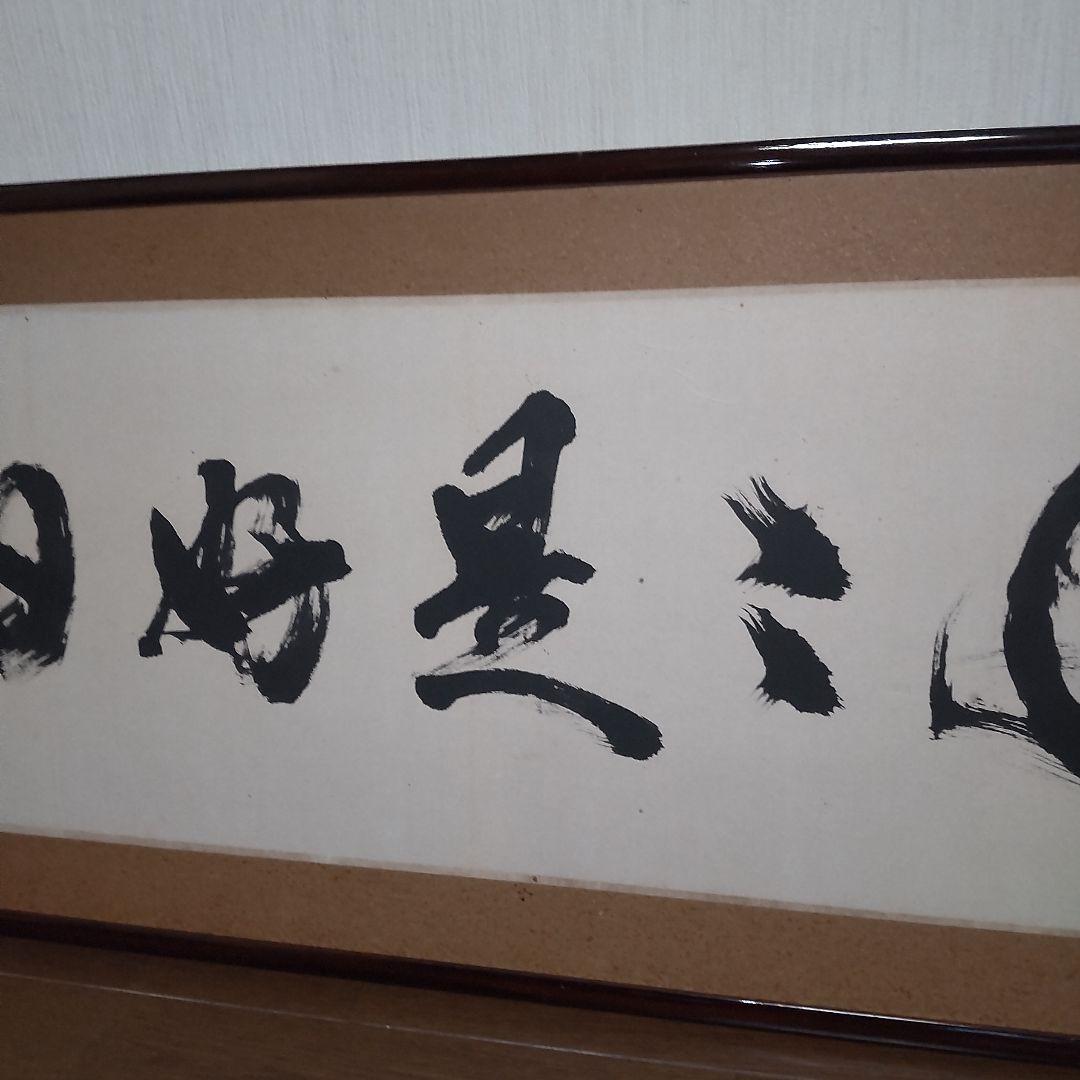 日〻是好日